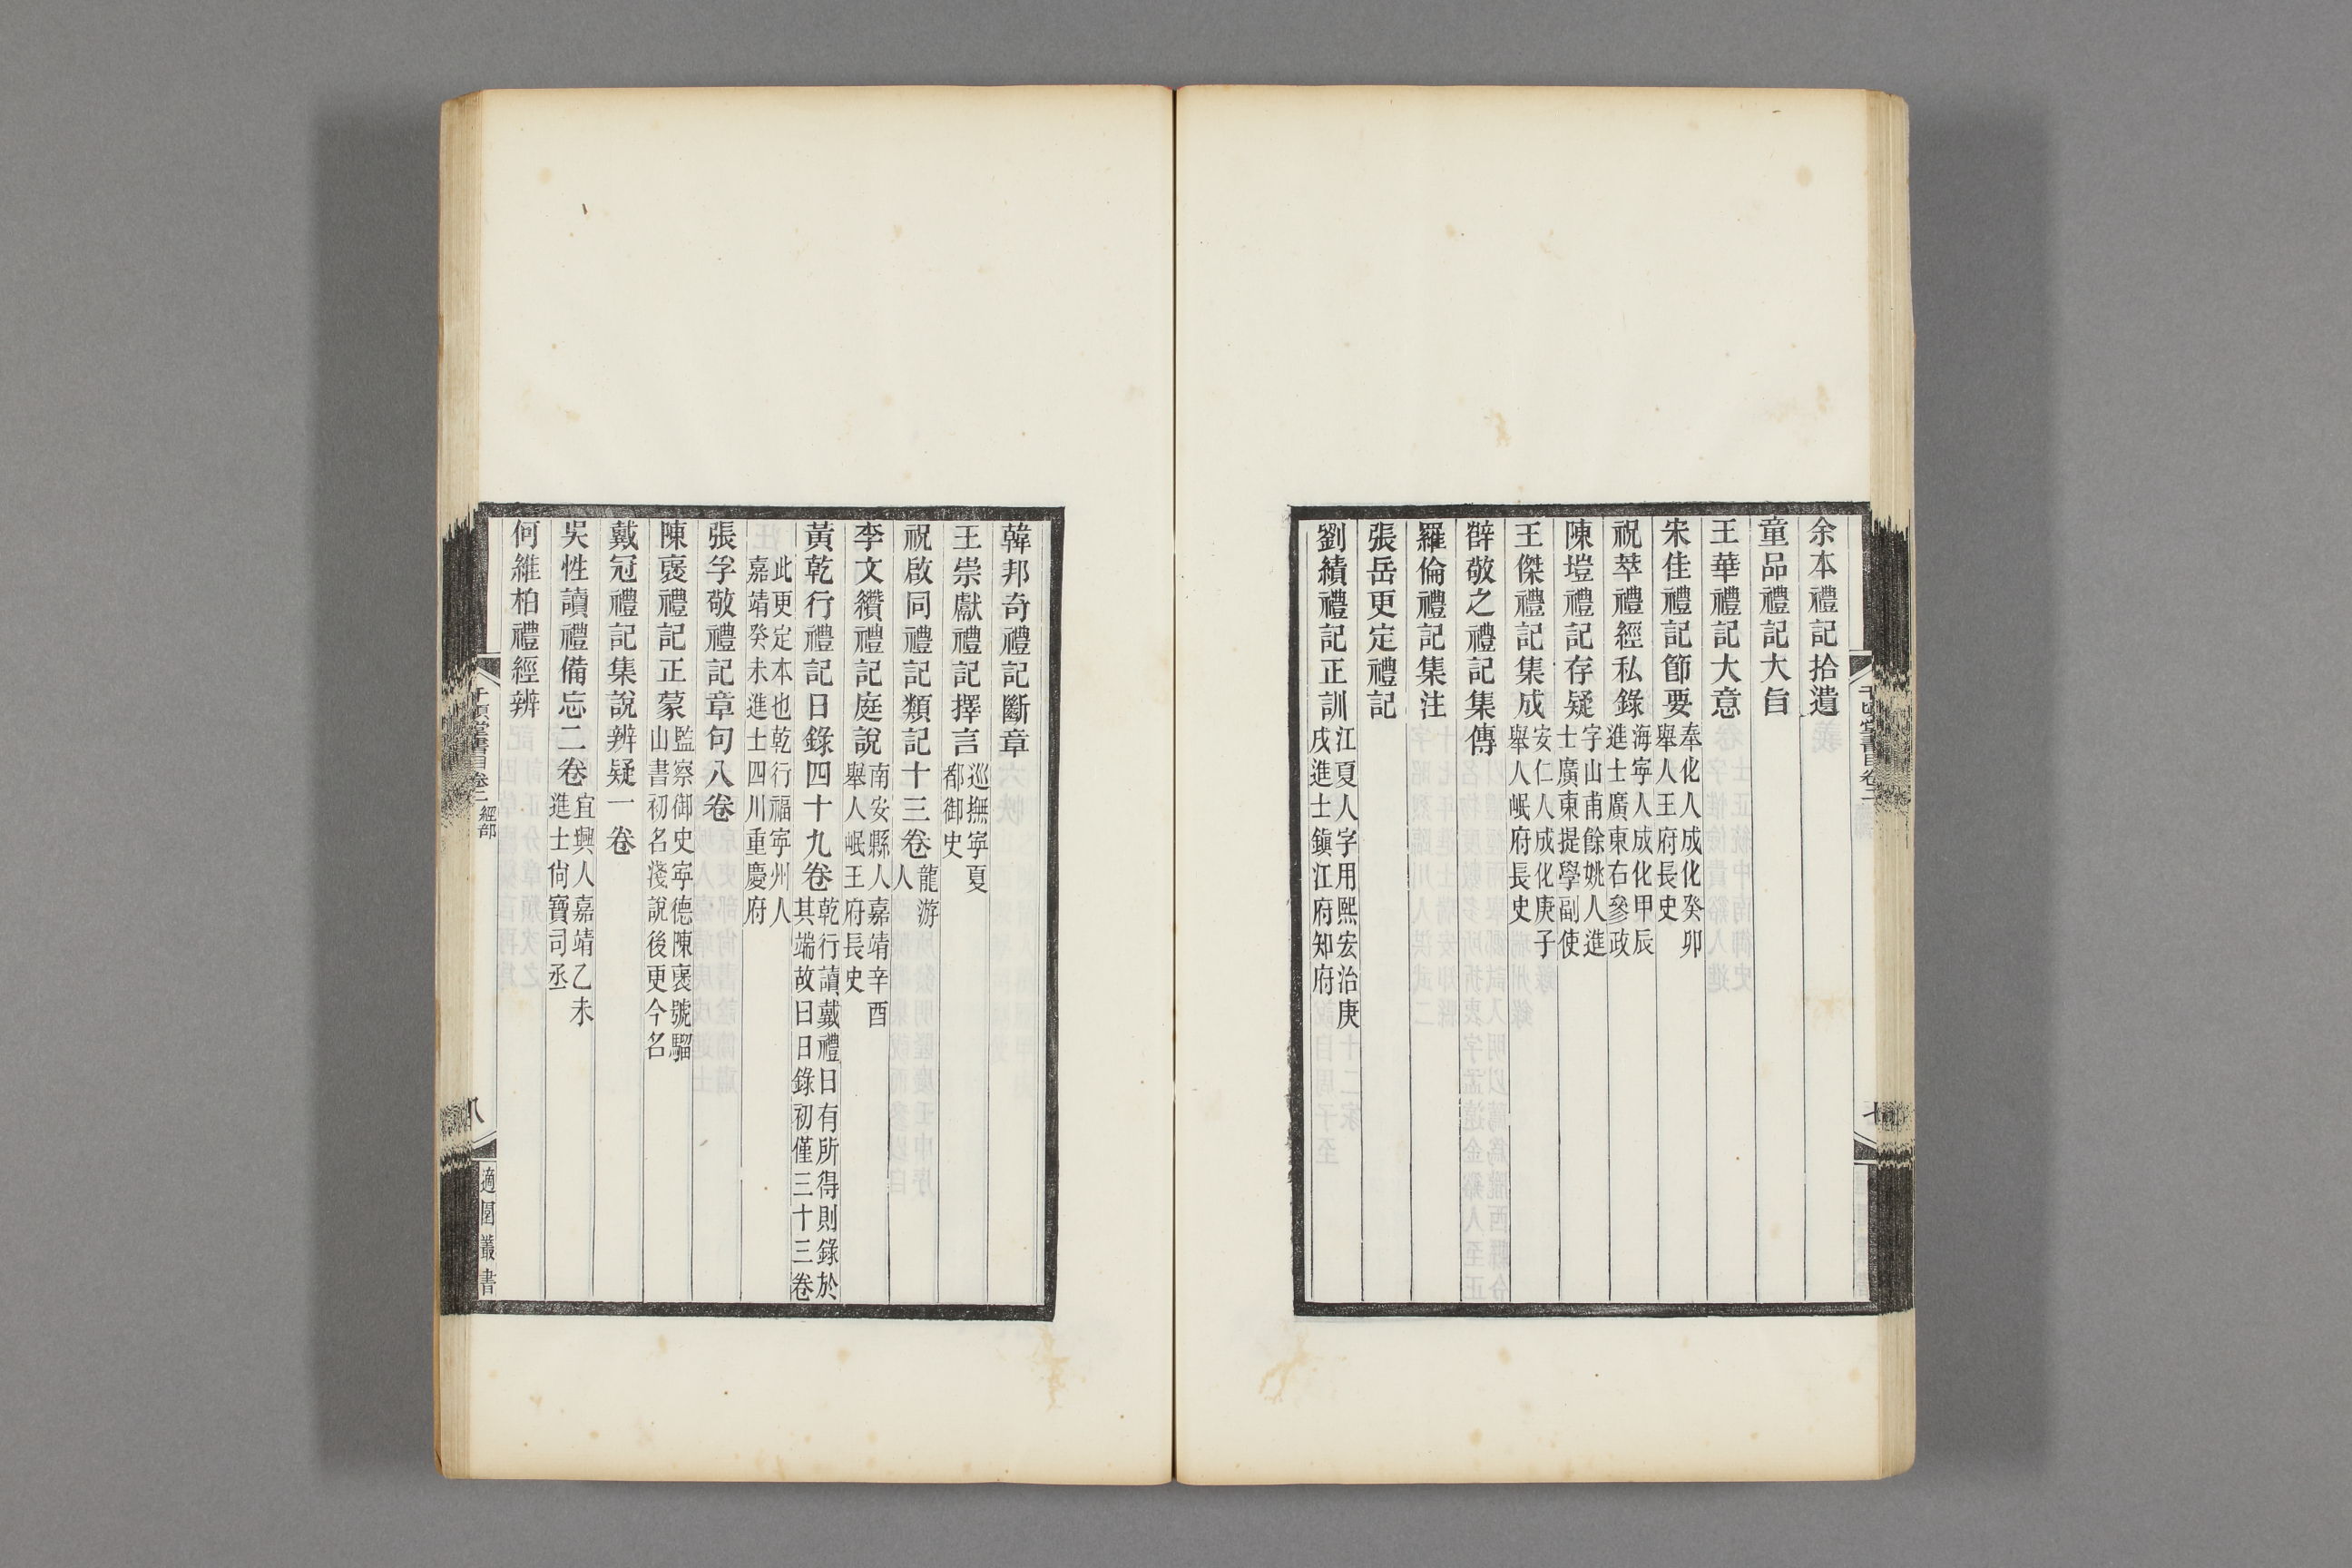 余本禮記拾遺
童品禮記大旨
王華禮記大意
宋佳禮記節要奉化人成化癸卯舉人王府長史
祝萃禮經私錄海寧人成化甲辰進士廣東右參政
陳塏禮記存疑字山甫餘姚人進士廣東提學副使
王傑禮記集成安仁人成化庚子舉人岷府長史
薛敬之禮記集傳
羅倫禮記集注
張岳更定禮記
劉績禮記正訓江夏人字用熙宏治庚戌進士鎮江府知府
韓邦奇禮記斷章
王崇獻禮記擇言巡撫寧夏都御史
祝啟同禮記類記十三卷龍游人
李文纘禮記庭說南安縣人嘉靖辛酉舉人岷王府長史
黃乾行禮記日錄四十九卷乾行讀戴禮日有所得則錄於其端故曰日錄初僅三十三卷
此更定本也乾行福寧州人嘉靖癸未進士四川重慶府
張孚敬禮記章句八卷
陳襃禮記正蒙監察御史寧德陳襃號騮山書初名淺說後更今名
戴冠禮記集說辨疑一卷
吳性讀禮備忘二卷宜興人嘉靖乙未進士尙寶司丞
何維柏禮經辨
千頃堂書目卷二 經部
八
適園叢書